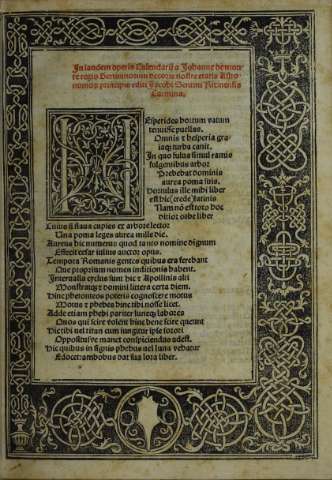 In laudem operis Calendarii a Johanne de mon
te regio Germanorum decoris nostre etatis Astro
nomorum principis editi Jacobi Sentini Ricinensis
Carmina.
HEsperides hortum vatum
tenuisse puellas.
Omnis et hesperia gra
iaque turba canit.
In quo fulua simul ramis
fulgentibus arbor
Prebebat dominis
aurea poma suis.
Hortulus ille mihi liber
est hic (crede) latinis
Nam non est toto
ditior orbe liber
Cuius si flaua cupies ex arbore lector
Una poma leges aurea mille die.
Aureus hic numerus quod tanto nomine dignum
Effecit cesar iulius auctor opus.
Tempora Romanis gentes quibus era ferebant
Que proprium nomen indictionis habent.
Interualla cyclus sunt hic et Apollinis alti
Monstratque et domini littera certa diem.
Hinc phetonteos poteris cognoscere motus
Motus et phebes hinc tibi nosse licet.
Adde etiam phebi pariter luneque labores
Quos qui scire volent hinc bene scire queunt
Hic tibi nel titan cum iungitur ipse sorori
Oppositusve manet conspiciendus adest.
Hic quibus in signis phebus vel luna vehatur
Edocet: ambobus dat sua lora liber.